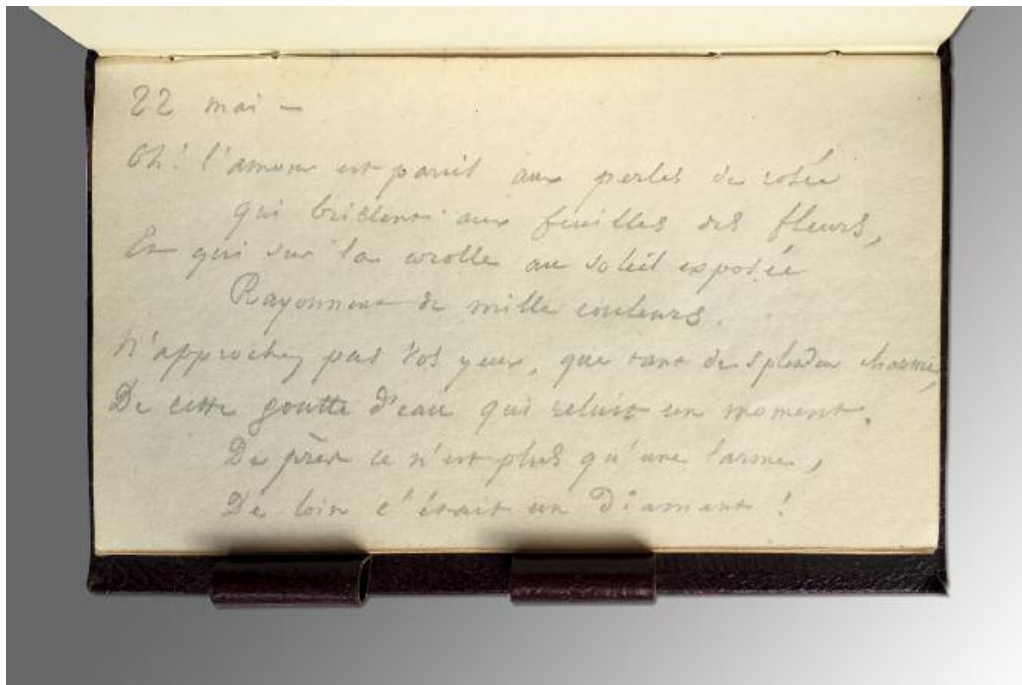 22 mai —
Oh! l'amour est pareil aux perles de rosée
qui brillent aux feuilles des fleurs,
Et qui sur la corolle au soleil exposée
Rayonnent de mille couleurs.
N'approchez pas vos yeux, que tant de splendeur charme,
De cette goutte d'eau qui reluit un moment.
De près ce n'est plus qu'une larme,
De loin c'était un Diamant !